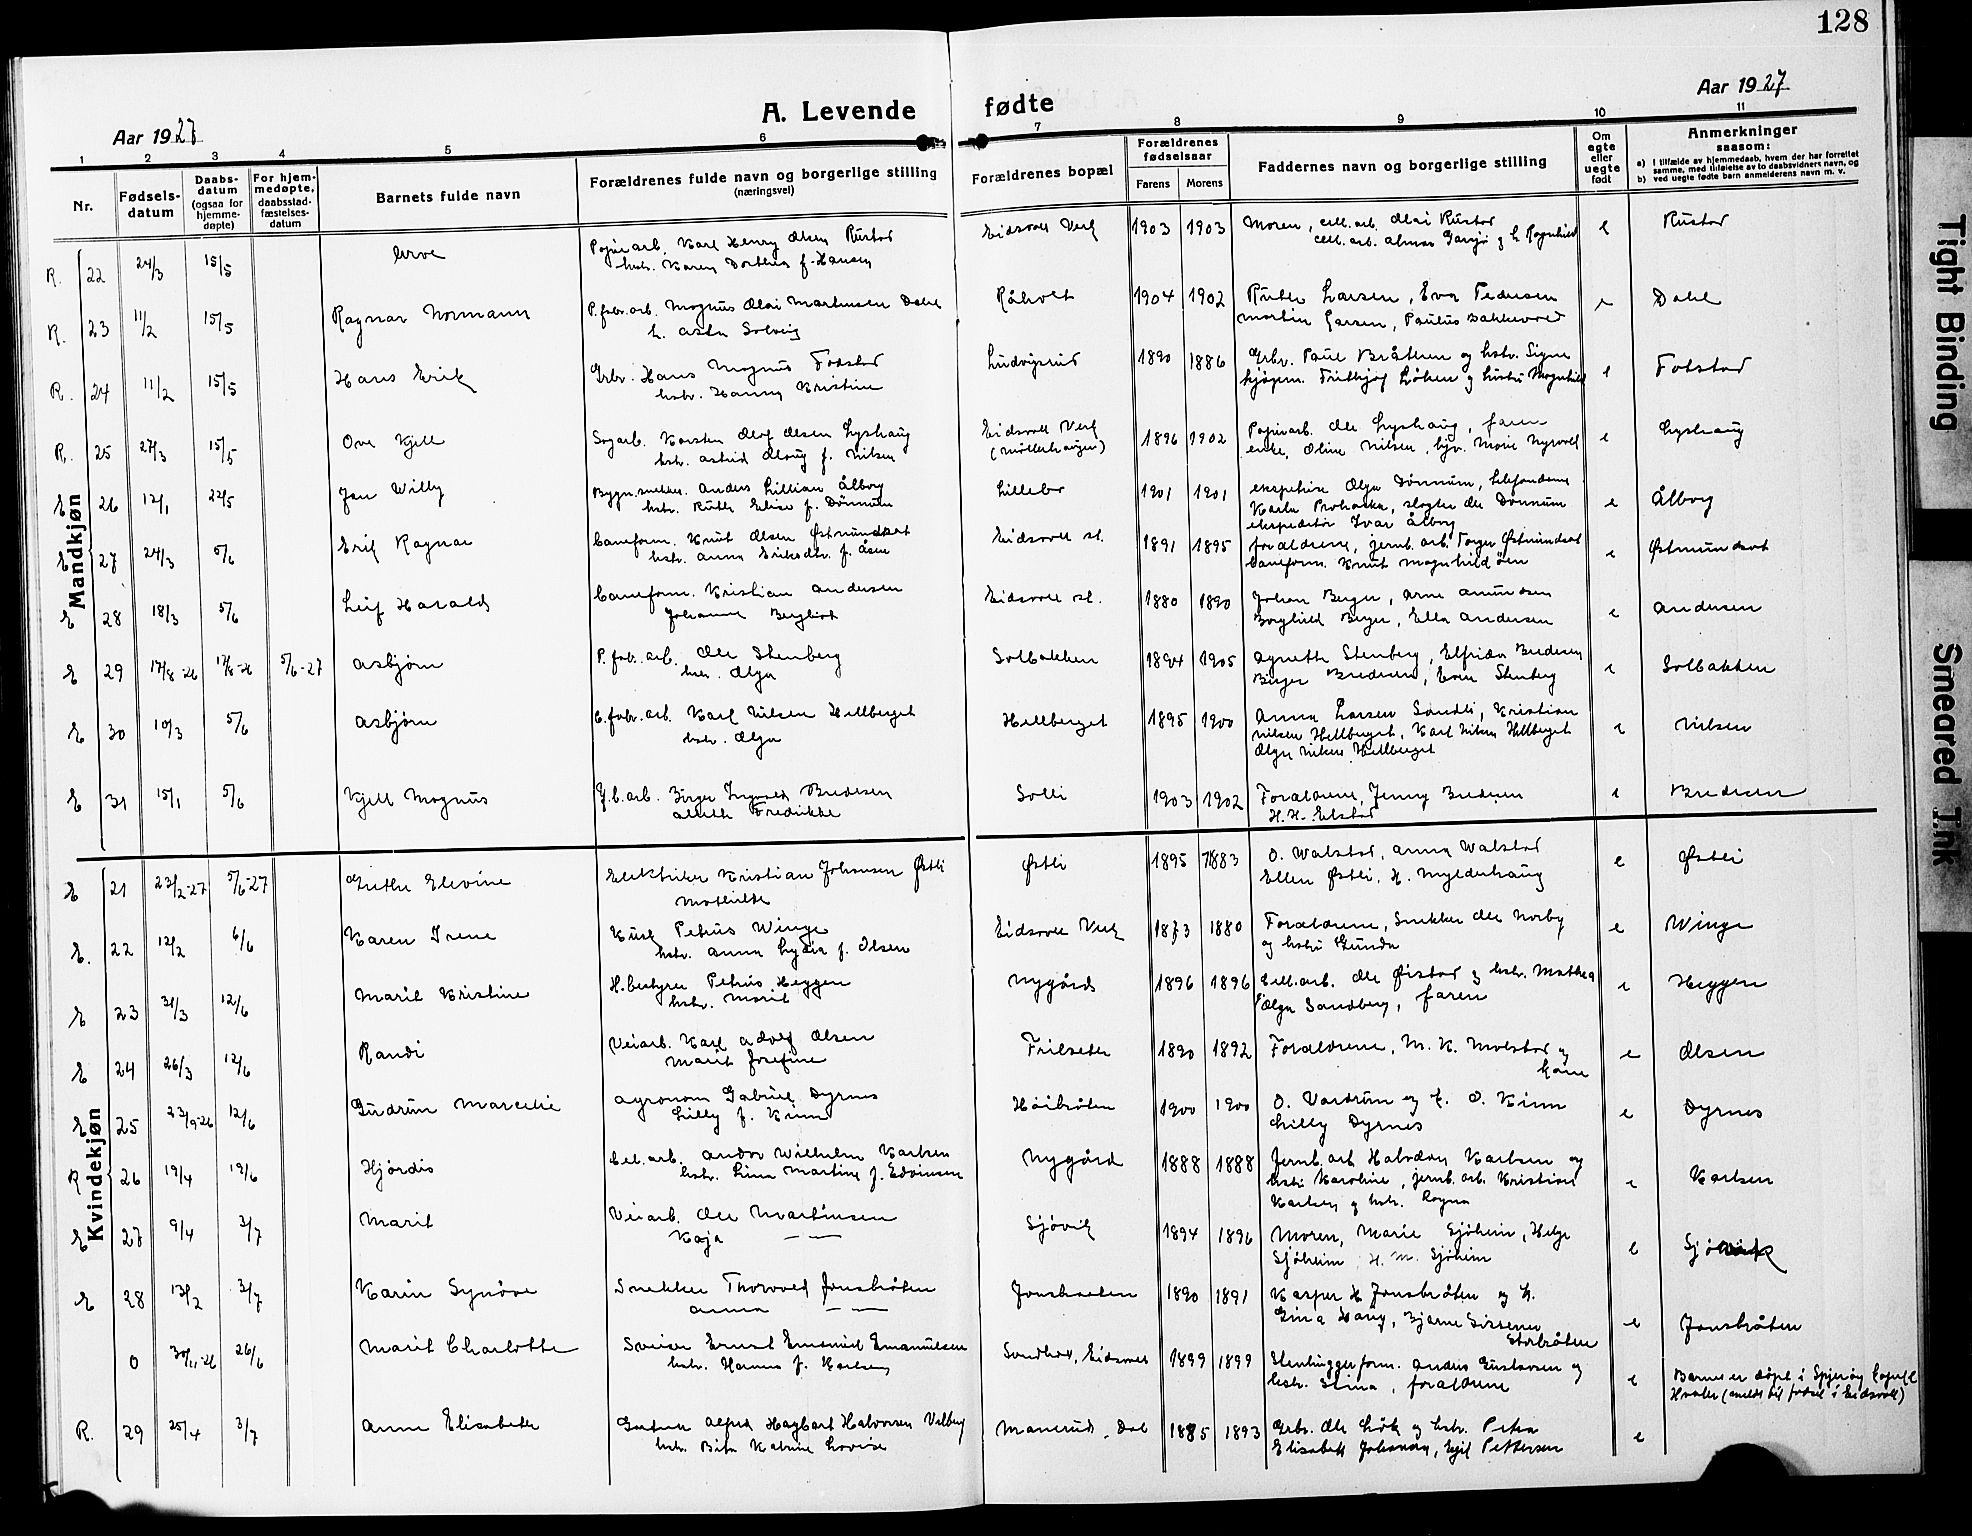 128
Aar 1927
A. Levende fødte
Aar 1927
1 2 3 4 5 6 7 8 9 10 11
Nr.
Fødsels-
datum
Daabs-
datum
(ogsaa for
hjemme-
døpte)
For hjem-
medøpte,
daabsstad-
fæstelses-
datum
Barnets fulde navn
Forældrenes fulde navn og borgerlige stilling
(næringsvei)
Forældrenes bopæl
Forældrenes
fødselsaar
Farens Morens
Faddernes navn og borgerlige stilling
Om
egte
eller
uegte
født
Anmerkninger
saasom:
a) i tilfælde av hjemmedaab, hvem der har forrettet
samme, med tilføielse av to daabsvidners navn, og
b) ved uegte fødte barn anmelderens navn m. v.
Mandkjøn
R. 22 24/3 15/5 Arve Papirarb. Karl Henry Olsen Rustad Eidsvoll Verk 1903 1903 Moren, cell. arb. Olai Rustad e Rustad
hstr. Karen Dorthea f. Hansen
R. 23 11/2 15/5 Ragnar Normann P. fabr. arb. Magnus Olai Martinsen Dahl Råholt 1904 1902 Ruth Larsen, Eva Pedersen e Dahl
h. Asta Solveig Martin Larsen, Paulus Bakkevold
R. 24 11/2 15/5 Hans Erik Grbr. Hans Magnus Fotstad Ludvigsrud 1890 1886 Grbr. Paul Bråthen og hstr. Signe e Fotstad
hstr. Hanny Kristine kjøpm. Fridtjof Løken og hustru Magnhild
R. 25 27/3 15/5 Ove Kjell Sagarb. Karsten Olaf Olsen Lyshaug Eidsvoll Verk 1896 1902 Papirarb. Ole Lyshaug, faren e Lyshaug
hstr. Astrid Olaug f. Nilsen (Møllerhaugen) enke Oline Nilsen, Marie Nyvold
E 26 12/1 22/5 Jan Willy Bygn.snekker Anders Lillian Ålborg 1901 1901 ekspeditrise Olga Dønnum e Ålborg
hstr. Ruth Elise f. Dønnum slagter Ole Dønnum
ekspeditør Ivar Ålborg
E 27 24/3 5/6 Erik Ragnar Baneform. Knut Olsen Østmundset Eidsvoll st. 1891 1895 foreldrene, jernb. arb. Torger Østmundset e Østmundset
hstr. Anna Eriksdtr. f. Åsen baneform. Knut Magnhild Åsen
E 28 18/3 5/6 Leif Harald Baneform. Kristian Andersen Eidsvoll st. 1880 1890 Johan Berger, Arne Amundsen e Andersen
Johanne Bergliot Borghild Berger, Ella Andersen
E 29 17/8-26 17/8-26 5/6-27 Asbjørn P. fabr. arb. Ole Stenberg Solbakken 1894 1905 Agnethe Stenberg, Elfrida Bredesen e Solbakken
hstr. Olga Birger Bredesen, Even Stenberg
E 30 10/3 5/6 Asbjørn C. fabr. arb. Karl Nilsen Hellberget Hellberget 1895 1900 Anna Larsen Sandli, Kristian e Nilsen
hstr. Olga Nilsen Hellberget, Karl Nilsen Hellberget
Olga Nilsen Hellberget
E 31 15/1 5/6 Kjell Magnus J. b. arb. Birger Ingvald Bredesen Solli 1903 1902 Foreldrene, Jenny Bredesen e Bredesen
Alethe Fredrikke H. H. Elstad
Kvindekjøn
E 21 23/2-27 5/6-27 Grethe Elevine Elektriker Kristian Johansen Østli Østli 1895 1883 O. Walstad, Anna Walstad e Østli
Mathilde Ellen Østli, H. Mylderhaug
E. 22 12/2 6/6 Karen Irene Kusk Petrus Winge Eidsvoll Verk 1873 1880 Foreldrene, Snekker Ole Norby e Winge
hstr. Anna Lydia f. Olsen og hstru Gunda
E 23 31/3 12/6 Marit Kristine H. bestyrer Petrus Heggen Nygård 1896 1896 Cell. arb. Ole Øistad og hstr. Mathea e Heggen
hstr. Marit Olga Sandberg, faren
E 24 26/3 12/6 Randi Veiarb. Karl Adolf Olsen Frilseter 1890 1892 Foreldrene, M. K. Molstad og e Olsen
Marit Josefine kone
E 25 23/9-26 12/6 Gudrun Marcelie Agronom Gabriel Dyrnes Høibråten 1900 1900 O. Vardrum og f. O. Kinn e Dyrnes
Lilly f. Kinn Lilly Dyrnes
R 26 19/4 19/6 Hjørdis Cel. arb. Andor Wilhelm Karlsen Nygård 1888 1888 Jernb. arb. Halvdan Karlsen og e Karlsen
hstr. Lina Martine f. Edvinsen hstr. Karoline, jernb. arb. Kristian
Karlsen og hstr. Ragna
E 27 9/4 3/7 Marit Veiarb. Ole Martinsen Sjøvik 1894 1896 Moren, Marie Sjøheim, Helge e Sjøvik
Kaja — — Sjøheim, H. M. Sjøheim
E 28 13/2 3/7 Karin Synøve Snekker Thorvald Jonsbråten Jonsbråten 1890 1891 Kasper H Jonsbråten og h. e Jonsbråten
Anna — — Gina Haug, Bjarne Sissener
Storbråten
0 30/11-26 26/6 Marit Charlotte Sveiser Ernst Emanuel Emanuelsen Sandbæk, Eidsvoll 1899 1899 Stenhuggerform. Anders Gustavsen og e Barnet er døpt i Spjærøy kapell
hstr. Hanna f. Karlsen hstr. Stina, foreldrene Hvaler (meldt til fødsel i Eidsvoll)
R. 29 25/4 3/7 Anne Elisabeth Alfred Hagbart Halvorsen Velberg Manerud, Dal 1885 1893 Grbr. Ole Løk og hstr. Petra e
hstr. Katrine Lovise Elisabeth Johansen, Egil Pettersen
Tight Binding
Smeared Ink